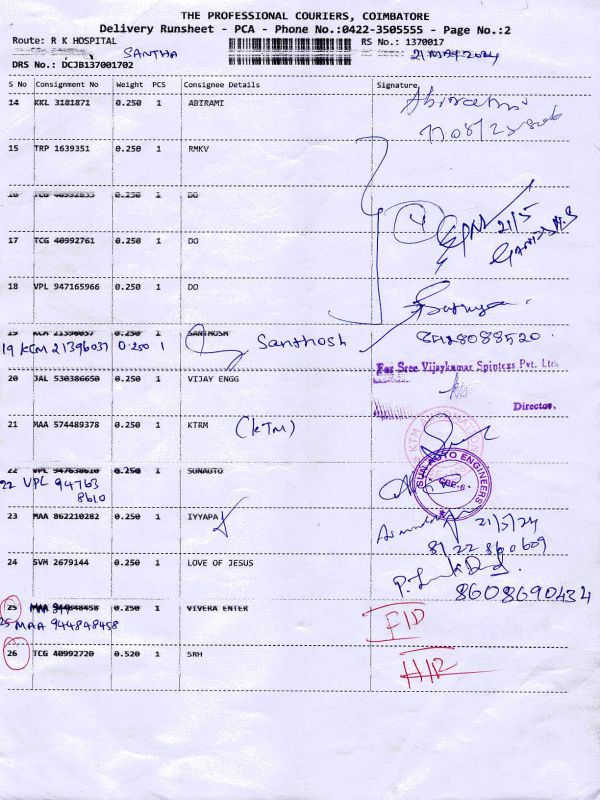 THE PROFESSIONAL COURIERS, COIMBATORE
Delivery Runsheet - PCA - Phone No.:0422-3505555 - Page No.:2
Route: R K HOSPITAL RS No.: 1370017
SANTHA 21 MAY 2024
DRS No.: DCJB137001702
S No Consignment No Weight PCS Consignee Details Signature
14 KKL 3181871 0.250 1 ABIRAMI
15 TRP 1639351 0.250 1 RMKV
16 TCG 1 DO
4 21/5
17 TCG 40992761 0.250 1 DO
18 VPL 947165966 0.250 1 DO
19 KCM 21396037 0.250 1 SANTHOSH
19 KCM 21396037 0.250 1 Santhosh
For Sree Vijaykumar Spintexs Pvt. Ltd
20 JAL 530386650 0.250 1 VIJAY ENGG
Director.
21 MAA 574489378 0.250 1 KTRM (KTM)
KTM
22 VPL 947638610 0.250 1 SUNAUTO
22 VPL 94763
8610
SUN AUTO ENGINEERS
CBE-6
23 MAA 862210282 0.250 1 IYYAPA
21/5/24
24 SVM 2679144 0.250 1 LOVE OF JESUS
8608690434
25 MAA 944848458 0.250 1 VIVERA ENTER
25 MAA 944848458
FID
26 TCG 40992720 0.520 1 SRH